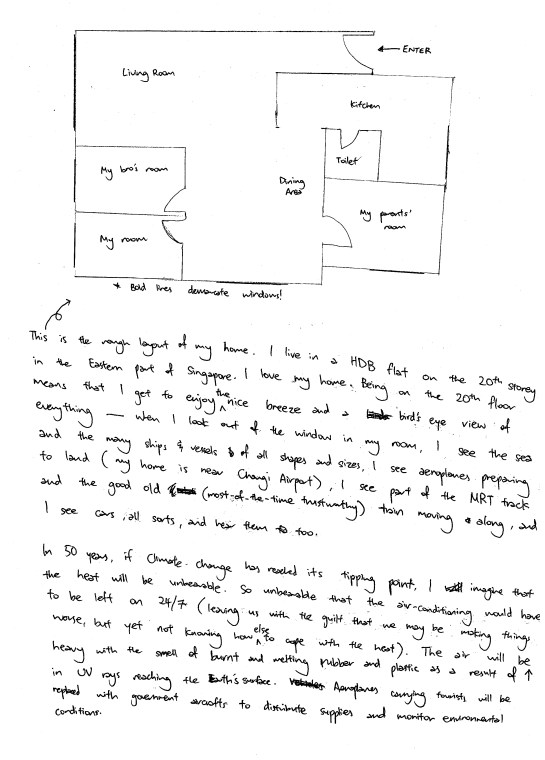 ENTER
Living Room
Kitchen
Toilet
My bro's room
Dining
Area
My parents'
room
My room
* Bold lines demarcate windows!
This is the rough layout of my home. I live in a HDB flat on the 20th storey
in the Eastern part of Singapore. I love my home. Being on the 20th floor
means that I get to enjoy the nice breeze and a bird's eye view of
everything — when I look out of the window in my room, I see the sea
and the many ships & vessels of all shapes and sizes, I see aeroplanes preparing
to land (my home is near Changi Airport), I see part of the MRT track
and the good old (most-of-the-time trustworthy) train moving along, and
I see cars, all sorts, and hear them too.
In 50 years, if Climate Change has reached its tipping point, I imagine that
the heat will be unbearable. So unbearable that the air-conditioning would have
to be left on 24/7 (leaving us with the guilt that we may be making things
worse, but yet not knowing how else to cope with the heat). The air will be
heavy with the smell of burnt and melting rubber and plastic as a result of ↑
in UV rays reaching the Earth's surface. Aeroplanes carrying tourists will be
replaced with government aircrafts to distribute supplies and monitor environmental
conditions.